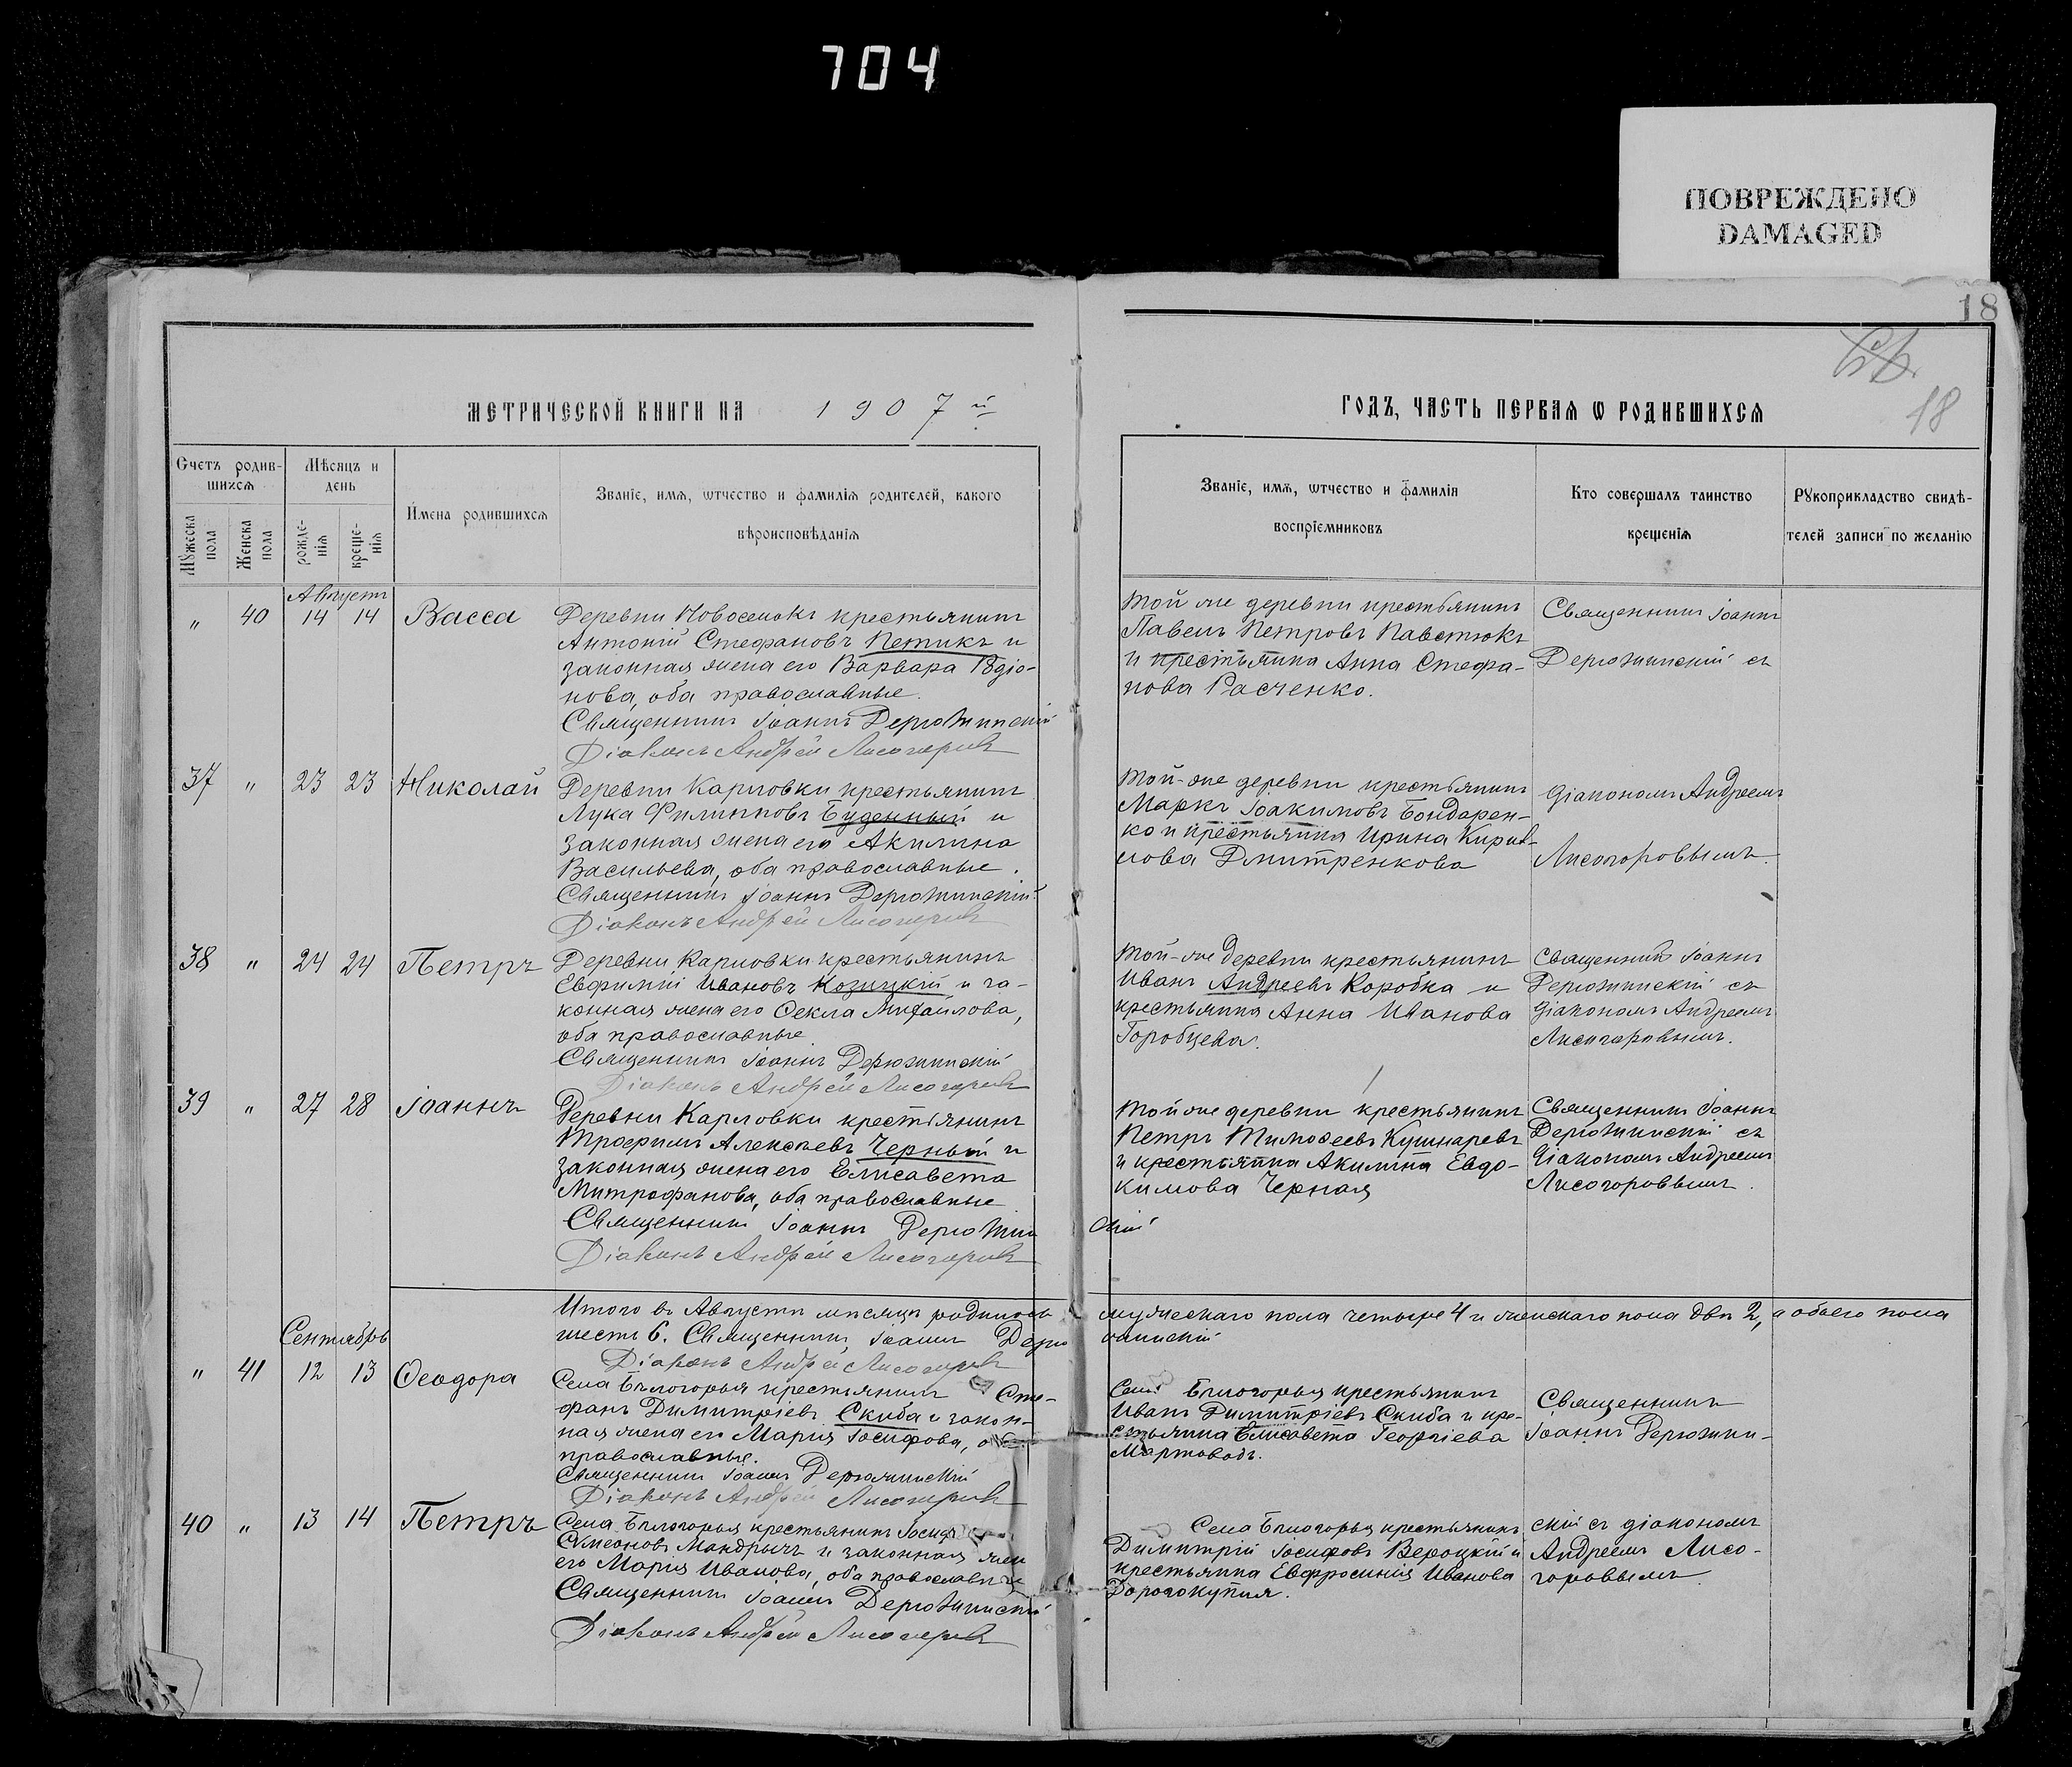 704
ПОВРЕЖДЕНО
DAMAGED
18
18
МЕТРИЧЕСКОЙ КНИГИ НА 1907 й
ГОДЪ, ЧАСТЬ ПЕРВАѦ Ѡ РОДИВШИХСѦ
Счетъ родив-
шихсѧ
Мѣсяцъ и
день
Имена родившихсѧ
Званіе, имѧ, ѡтчество и фамиліѧ родителей, какого
вѣроисповѣданіѧ
Мꙋжеска
пола
Женска
пола
рожде-
нія
креще-
нія
Званіе, имѧ, ѡтчество и фамилія
воспріемниковъ
Кто совершалъ таинство
крещеніѧ
Рꙋкоприкладство свидѣ-
телей записи по желанію
Августъ
" 40 14 14 Васса
Деревни Новоселокъ крестьянинъ
Антоній Стефановъ Петикъ и
законная жена его Варвара Родіо-
нова, оба православные.
Священникъ Іоаннъ Дерюжинскій
Діаконъ Андрей Лисогоровъ
Той же деревни крестьянинъ
Павелъ Петровъ Павстюкъ
и крестьянка Анна Стефа-
нова Расченко.
Священникъ Іоаннъ
Дерюжинскій съ
37 " 23 23 Николай
Деревни Карловки крестьянинъ
Лука Филипповъ Буденный и
законная жена его Акилина
Васильева, оба православные.
Священникъ Іоаннъ Дерюжинскій
Діаконъ Андрей Лисогоровъ
Той-же деревни крестьянинъ
Маркъ Іоакимовъ Бондарен-
ко и крестьянка Ирина Кирил-
лова Дмитренкова
діакономъ Андреемъ
Лисогоровымъ.
38 " 24 24 Петръ
Деревни Карловки крестьянинъ
Евфимій Ивановъ Козицкій и за-
конная жена его Ѳекла Михаилова,
оба православные
Священникъ Іоаннъ Дерюжинскій
Діаконъ Андрей Лисогоровъ
Той-же деревни крестьянинъ
Иванъ Андреевъ Коробка и
крестьянка Анна Иванова
Горобцева.
Священникъ Іоаннъ
Дерюжинскій съ
діакономъ Андреемъ
Лисогоровымъ.
39 " 27 28 Іоаннъ
Деревни Карловки крестьянинъ
Трофимъ Алексѣевъ Черный и
законная жена его Елисавета
Митрофанова, оба православные
Священникъ Іоаннъ Дерюжин
скій
Діаконъ Андрей Лисогоровъ
Той же деревни крестьянинъ
Петръ Тимоѳеевъ Кушнаревъ
и крестьянка Акилина Евдо-
кимова Черная
Священникъ Іоаннъ
Дерюжинскій съ
діакономъ Андреемъ
Лисогоровымъ.
Итого въ Августѣ мѣсяцѣ родилось мужескаго пола четыре 4 и женскаго пола двѣ 2, а обоего пола
шесть 6. Священникъ Іоаннъ Дерю жинскій
Діаконъ Андрей Лисогоровъ
Сентябрь
" 41 12 13 Ѳеодора
Села Бѣлогорья крестьянинъ Сте-
фанъ Димитріевъ Скиба и закон-
ная жена его Марія Іосифова, оба
православные.
Священникъ Іоаннъ Дерюжинскій
Діаконъ Андрей Лисогоровъ
Села Бѣлогорья крестьянинъ
Иванъ Димитріевъ Скиба и кре-
стьянка Елисавета Георгіева
Мартоводъ.
Священникъ
Іоаннъ Дерюжин-
40 " 13 14 Петръ
Села Бѣлогорья крестьянинъ Іосифъ
Сѵмеоновъ Мандрычъ и законная жена
его Марія Иванова, оба православные
Священникъ Іоаннъ Дерюжинскій
Діаконъ Андрей Лисогоровъ
Села Бѣлогорья крестьянинъ
Димитрій Іосифовъ Вероцкій и
крестьянка Евфросинія Иванова
Дорогокупля.
скій съ діакономъ
Андреемъ Лисо-
горовымъ